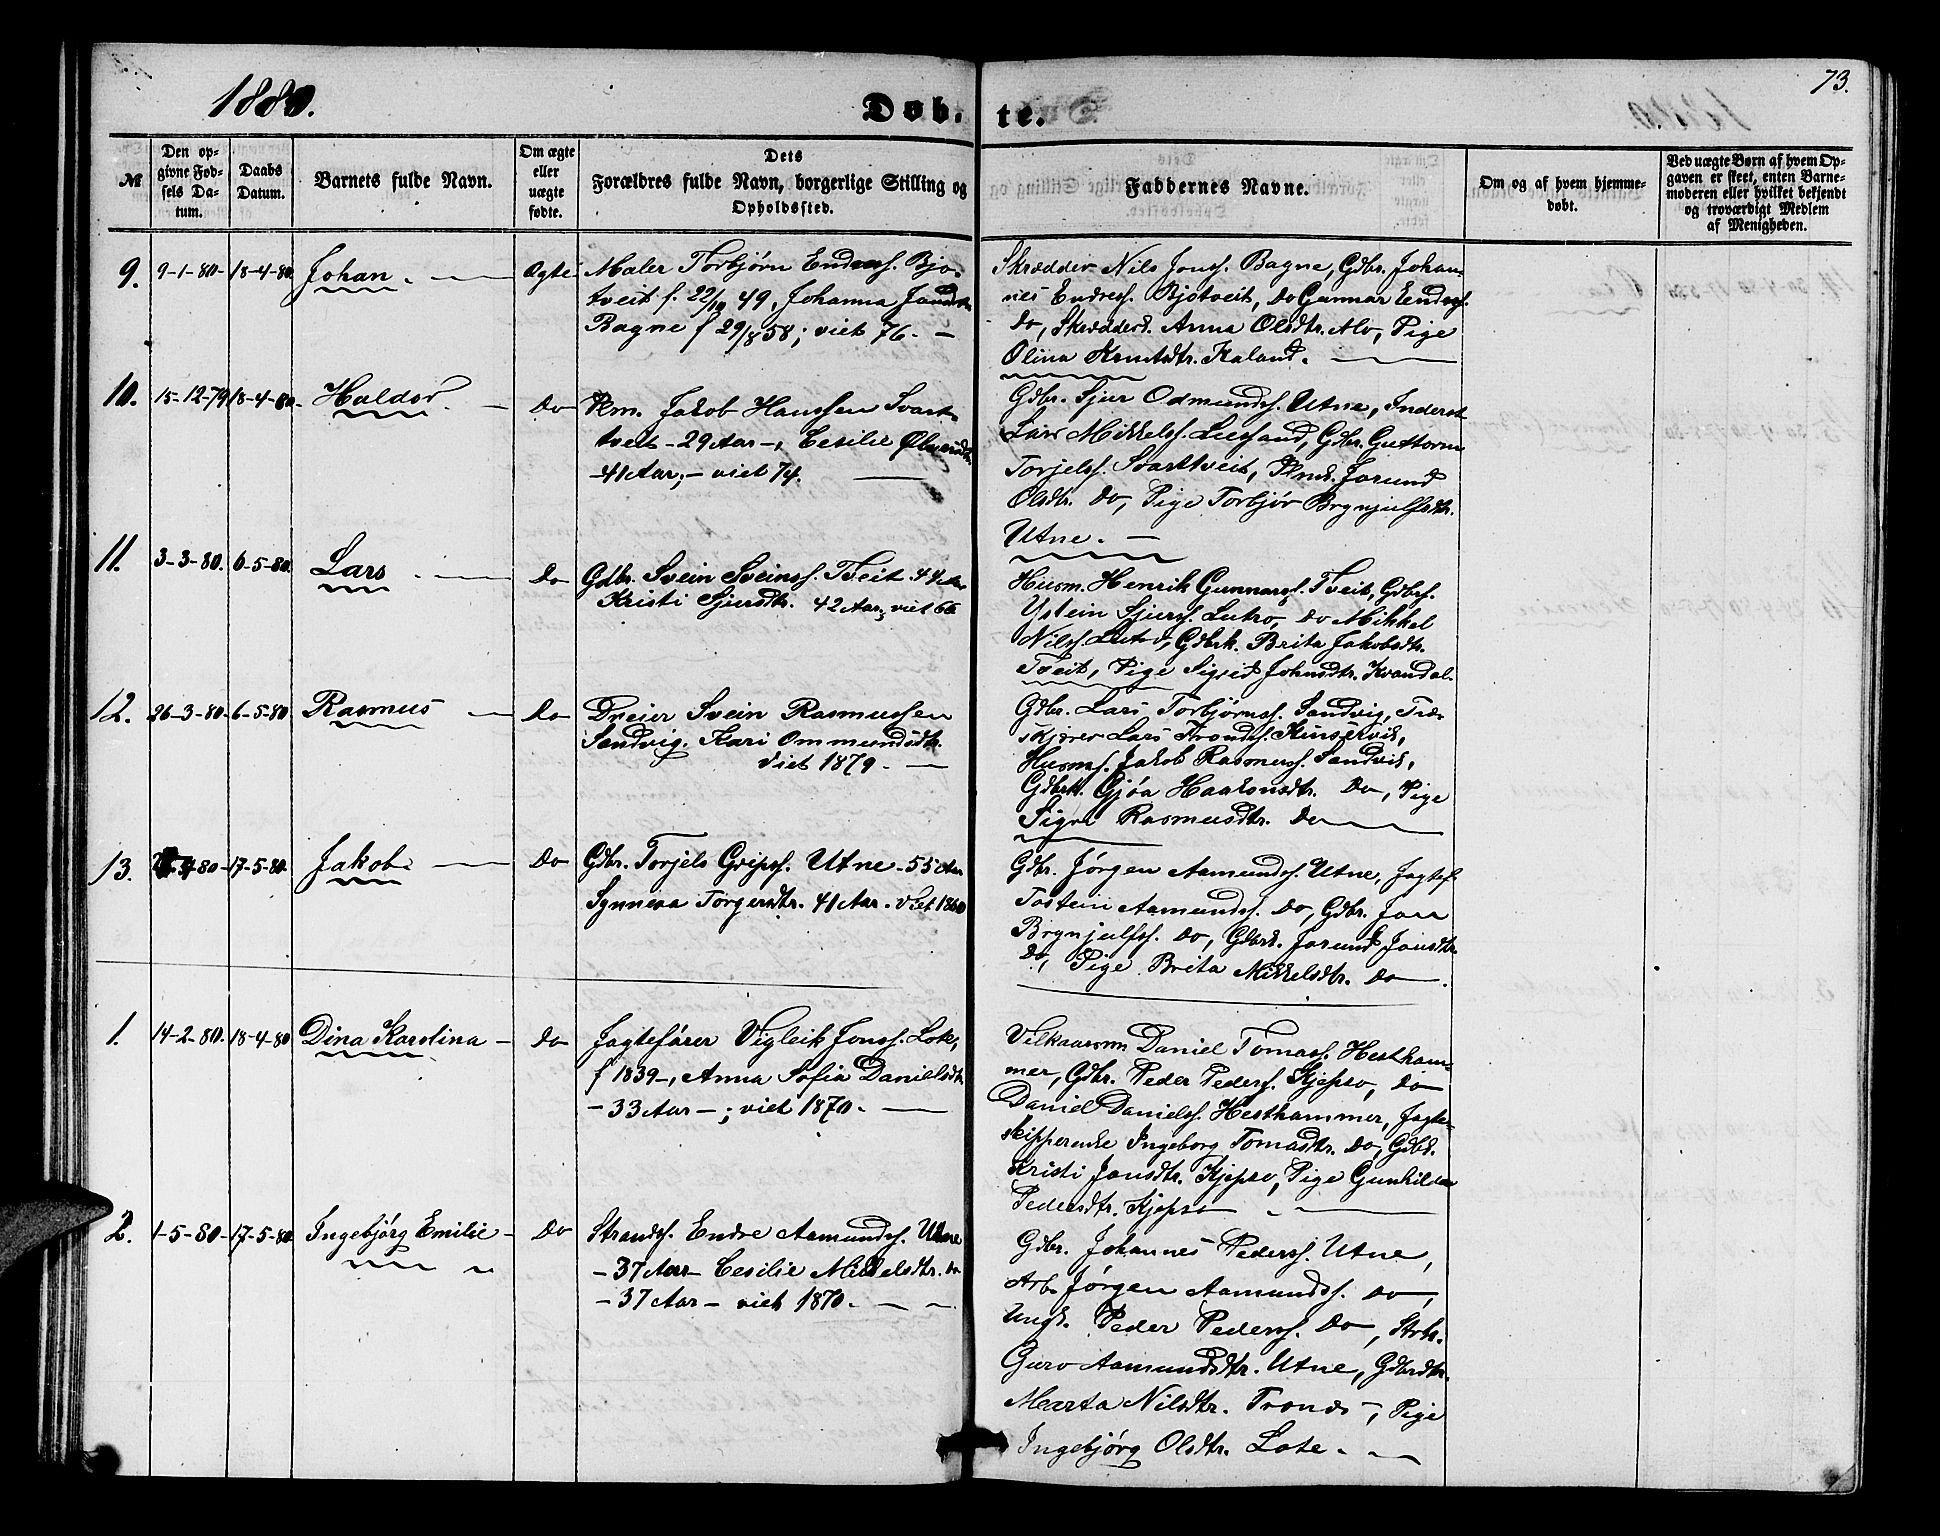 1880.
Døb-
te.
73.
№
Den op-
givne Fød-
sels Da-
tum.
Daabs
Datum.
Barnets fulde Navn.
Om ægte
eller
uægte
fødte.
Dets
Forældres fulde Navn, borgerlige Stilling og
Opholdssted.
Faddernes Navne.
Om og af hvem hjemme-
døbt.
Ved uægte Børn af hvem Op-
gaven er skeet, enten Barne-
moderen eller hvilket bekjendt
og troværdigt Medlem
af Menigheden.
9. 9-1-80- 18-4-80 Johan. Ægte
Maler Torbjørn Endress. Bjo-
tveit f. 22/10 49, Johanna
Bagne f 29/8 58; viet 76. -
Skrædder Nils Jonss. Bagne, Gdbr. Johan-
nes Endress. Bjotveit, Do Gunnar Endress.
Do, Skrædderd. Anna Olsdtr. Alo, Pige
Olina Knutsdtr. Kaland.
10. 15-12-79 18-4-80. Haldor. Do
Jakob Hanssen Svart-
tveit - 29 Aar -, Cecilie
- 41 Aar, - viet 74.
Gdbr. Sjur Odmundss. Utne, Inderst
Lars Mikkelss. Lussand, Gdbr. Guttorm
Torjelss. Svarttveit, Jorund
Olsdtr. Do, Pige Torbjør Brynjulfsdtr.
Utne. -
11. 3-3-80. 6-5-80. Lars. Do
Gdbr. Svein Sveinss. Tveit 44 Aar
Kristi Sjursdtr. 42 Aar, viet 66
Husm. Henrik Gunnarss. Tveit, Gdbrs.
Ystein Sjurss. Lutro, Do Mikkel
Nilss. Lutro, Gdbrk. Brita Jakobsdtr.
Tveit, Pige Sigrid Johnsdtr. Kvandal.
12. 26-3-80- 6-5-80 Rasmus Do
Dreier Svein Rasmussen
Sandvig. Kari Ommundsdtr.
Viet 1879. -
Gdbr. Lars Torbjørnss. Sandvig, Træ-
skjærer Lars Trondss. Kinservik,
Husms. Jakob Rasmuss. Sandvik,
Gdbrk. Gjøa Haakonsdtr. Do, Pige
Signe Rasmusdtr. Do
13. 80- 17-5-80. Jakob. Do
Gdbr. Torjels Gripss. Utne - 55 Aar
Synneva Torgersdtr. 41 Aar. Viet 1860
Gdbr. Jørgen Aamundss. Utne, Jagtef.
Tostein Aamundss. Do, Gdbr. Jon
Brynjulfss. Do, Gdbrk. Jorund Jonsdtr.
Do, Pige Brita Mikkelsdtr. Do
1. 14-2-80. 18-4-80 Dina Karolina - Do
Jagtefører Vigleik Jonss. Lote,
f 1839-, Anna Sofia Danielsdtr.
- 33 Aar -; viet 1870.
Vilkaarsm Daniel Tomass. Hestham-
mer, Gdbr. Peder Peders. Kjepso, Do
Daniel Danielss. Hesthammer, Jagte-
skipperenke Ingeborg Tomasdtr. Do, Gdbd.
Kristi Jonsdtr. Kjepso, Pige Gunhilda
Pedersdtr. Kjepso
2. 1-5-80- 17-5-80 Ingebjørg Emilie - Do
Strands. Endre Aamundss. Utne
- 37 Aar - Cesilie Mikkelsdtr. Do
- 37 Aar - viet 1870.
Gdbr. Johannes Pederss. Utne,
Arb. Jørgen Aamundss. Do,
Ungk. Peder Pederss. Do, Strbr.
Guro Aamundsdtr. Utne, Gdbrdtr.
Marta Nilsdtr. Trones, Pige
Ingebjørg Olsdtr. Lote.